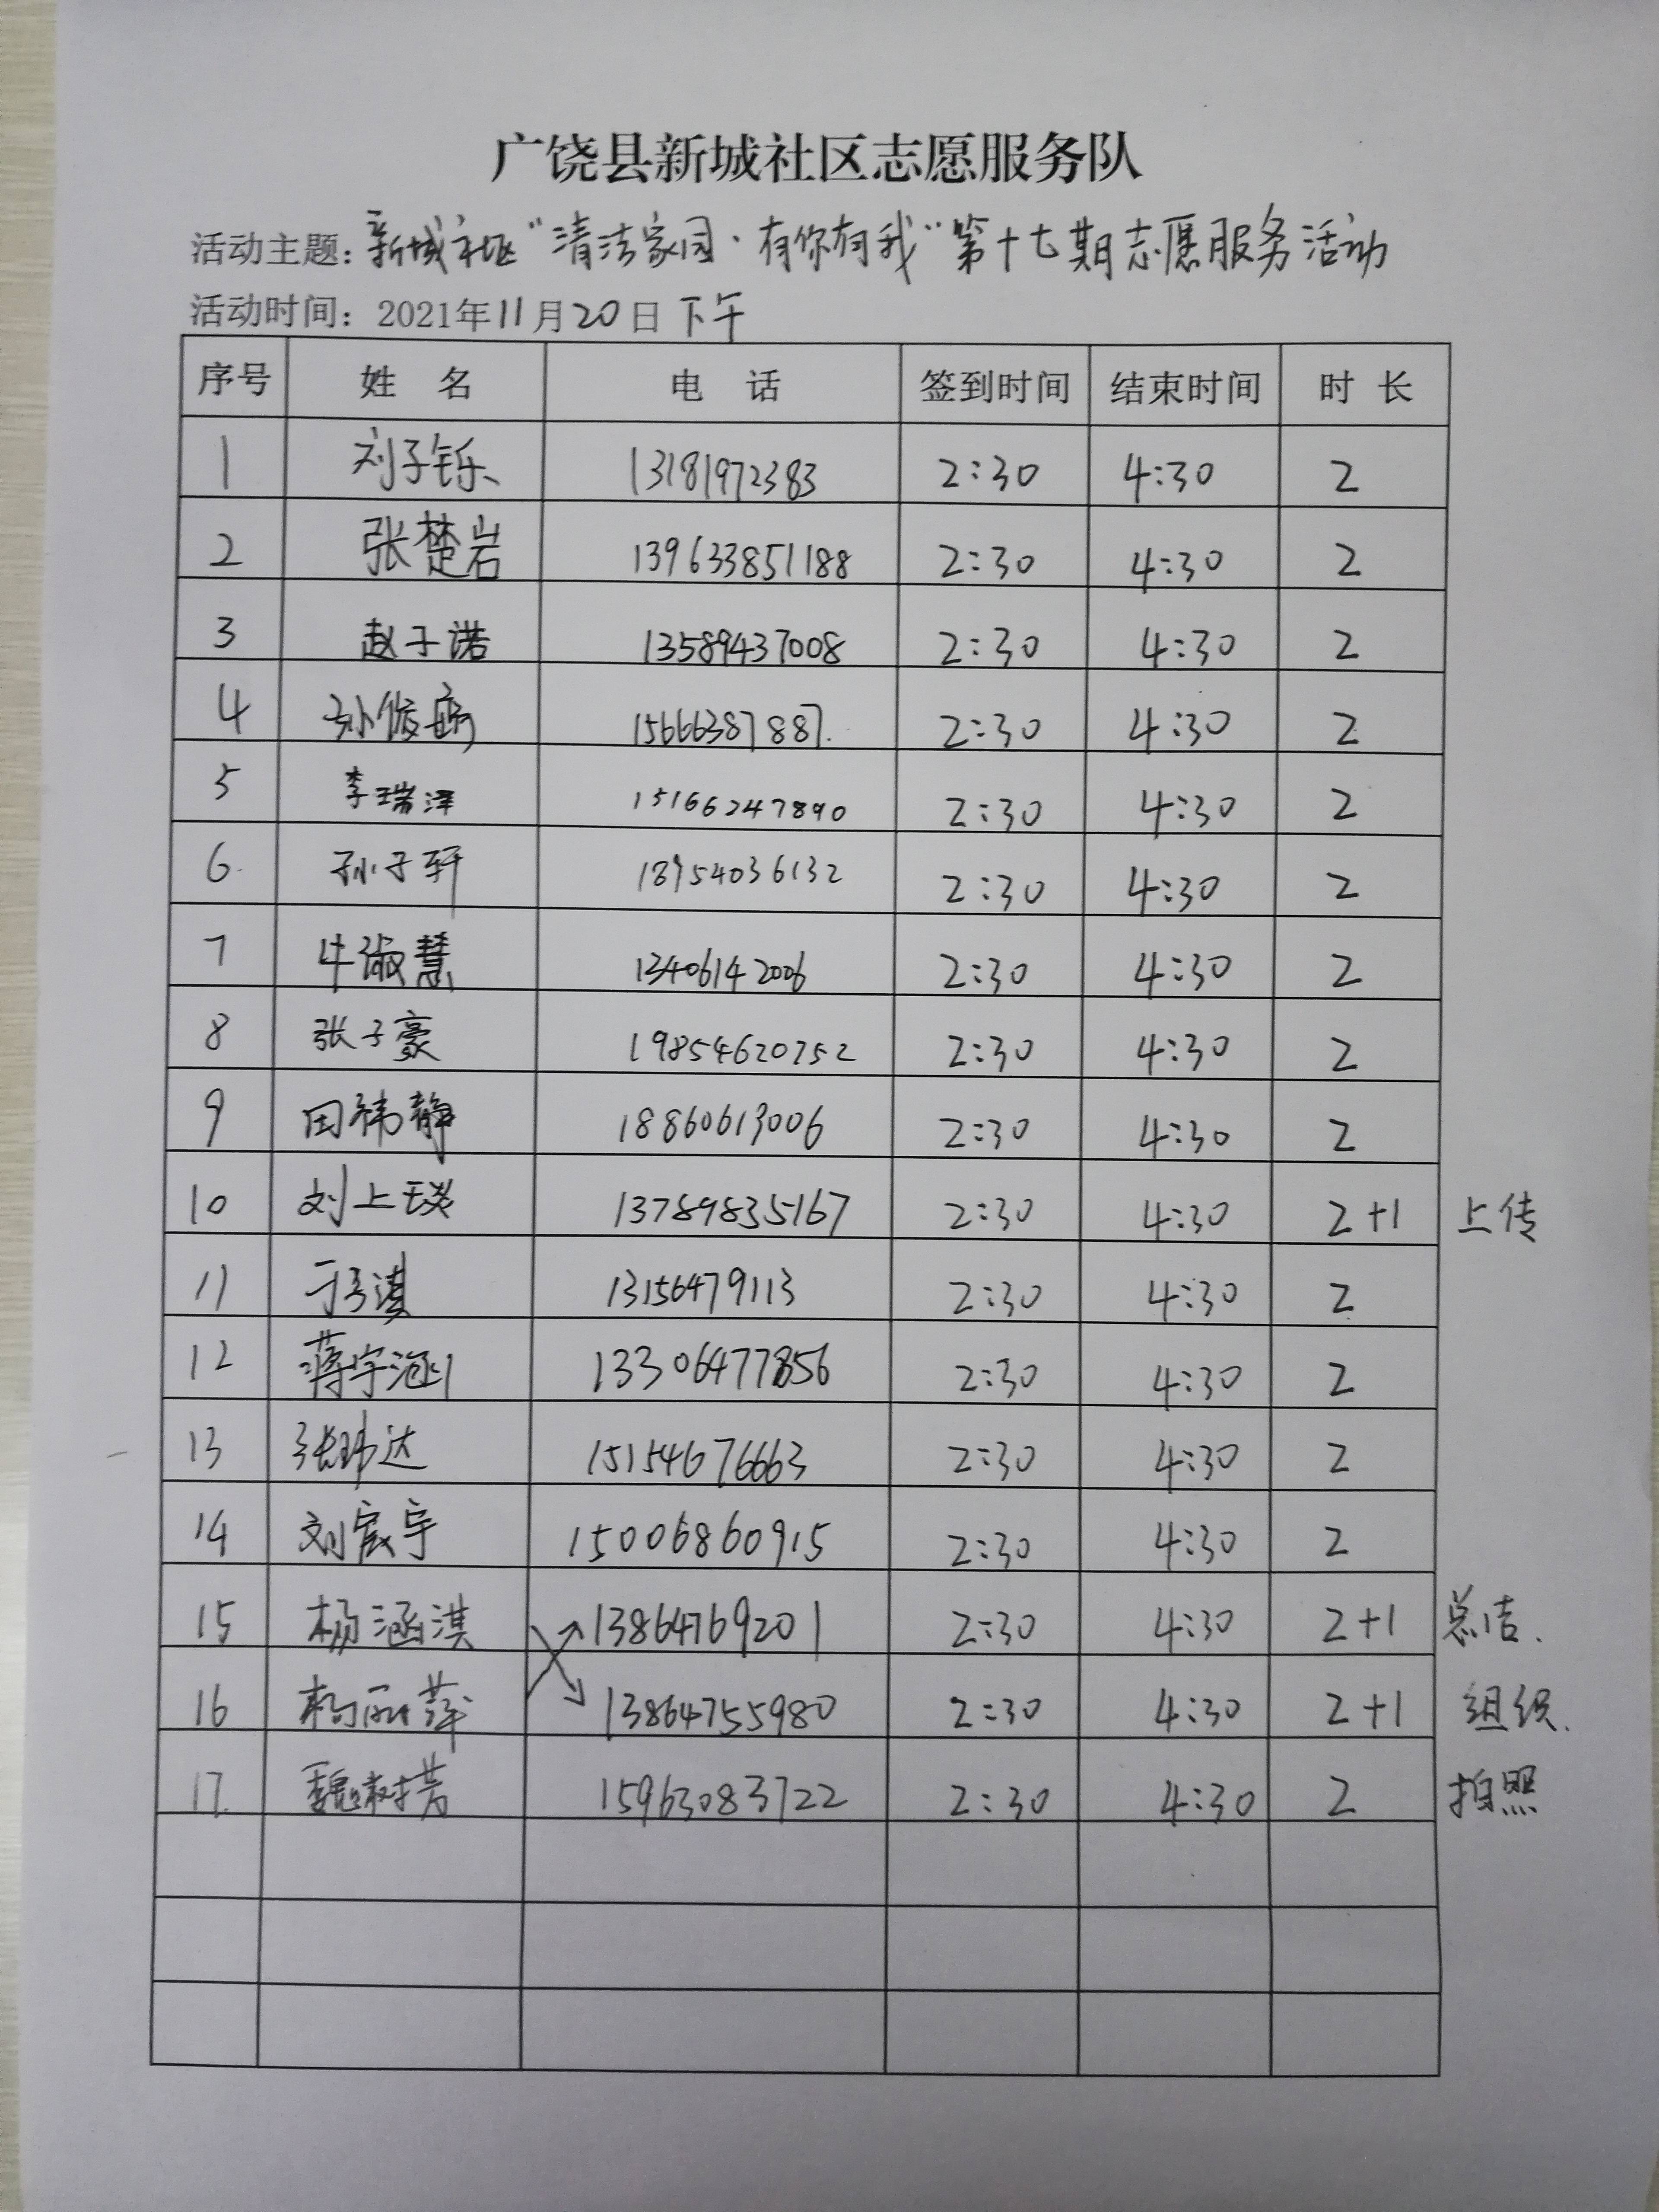 广饶县新城社区志愿服务队
活动主题：新城社区“清洁家园·有你有我”第十七期志愿服务活动
活动时间：2021年11月20日下午
序号 姓名 电话 签到时间 结束时间 时长
1 刘子铄 13181972383 2:30 4:30 2
2 张楚岩 139633851188 2:30 4:30 2
3 赵子诺 13589437008 2:30 4:30 2
4 孙俊 15666387887. 2:30 4:30 2
5 李瑞泽 15166247890 2:30 4:30 2
6. 孙子轩 18954036132 2:30 4:30 2
7 牛淑慧 13406142006 2:30 4:30 2
8 张子豪 19854620752 2:30 4:30 2
9 田祎静 18860613006 2:30 4:30 2
10 刘上琰 13789835167 2:30 4:30 2+1 上传
11 于子淇 13156479113 2:30 4:30 2
12 蒋宇涵 13306477856 2:30 4:30 2
13 张玮达 15154676663 2:30 4:30 2
14 刘宸宇 15006860915 2:30 4:30 2
15 杨涵淇 13864769201 2:30 4:30 2+1 总结.
16 杨丽萍 13864755980 2:30 4:30 2+1 组织.
17. 魏树芳 15963083722 2:30 4:30 2 拍照